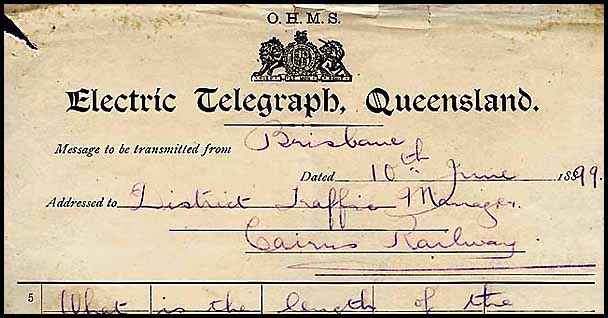 O. H. M. S.
Electric Telegraph, Queensland.
Message to be transmitted from Brisbane
Dated 10th June 1899.
Addressed to District Traffic Manager.
Cairns Railway.
5 What is the length of the